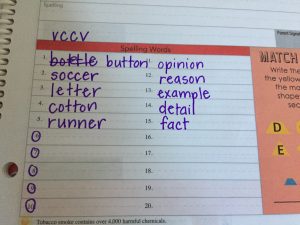 Spelling
Parent Signat
VCCV
Spelling Words
1. bottle button 11. opinion
2. soccer 12. reason
3. letter 13. example
4. cotton 14. detail
5. runner 15. fact
6 16.
7 17.
8 18.
9 19.
10 20.
Tobacco smoke contains over 4,000 harmful chemicals.
MATCH
Write the
the yellow
the ma
shape
sec
D
E